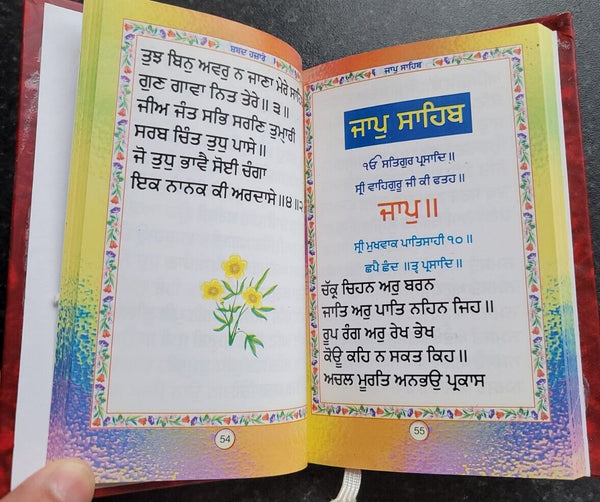 ਸ਼ਬਦ ਹਜ਼ਾਰੇ
ਤੁਝ ਬਿਨੁ ਅਵਰੁ ਨ ਜਾਣਾ ਮੇਰੇ
ਗੁਣ ਗਾਵਾ ਨਿਤ ਤੇਰੇ॥ ੩॥
ਜੀਅ ਜੰਤ ਸਭਿ ਸਰਣਿ ਤੁਮ੍ਹਾਰੀ
ਸਰਬ ਚਿੰਤ ਤੁਧੁ ਪਾਸੇ॥
ਜੋ ਤੁਧੁ ਭਾਵੈ ਸੋਈ ਚੰਗਾ
ਇਕ ਨਾਨਕ ਕੀ ਅਰਦਾਸੇ॥੪॥੨
54
ਜਾਪੁ ਸਾਹਿਬ
ਜਾਪੁ ਸਾਹਿਬ
ੴ ਸਤਿਗੁਰ ਪ੍ਰਸਾਦਿ॥
ਸ੍ਰੀ ਵਾਹਿਗੁਰੂ ਜੀ ਕੀ ਫਤਹ॥
ਜਾਪੁ॥
ਸ੍ਰੀ ਮੁਖਵਾਕ ਪਾਤਿਸਾਹੀ ੧੦॥
ਛਪੈ ਛੰਦ ॥ਤ੍ਵ ਪ੍ਰਸਾਦਿ॥
ਚੱਕ੍ਰ ਚਿਹਨ ਅਰੁ ਬਰਨ
ਜਾਤਿ ਅਰੁ ਪਾਤਿ ਨਹਿਨ ਜਿਹ॥
ਰੂਪ ਰੰਗ ਅਰੁ ਰੇਖ ਭੇਖ
ਕੋਊ ਕਹਿ ਨ ਸਕਤ ਕਿਹ॥
ਅਚਲ ਮੂਰਤਿ ਅਨਭਉ ਪ੍ਰਕਾਸ
55